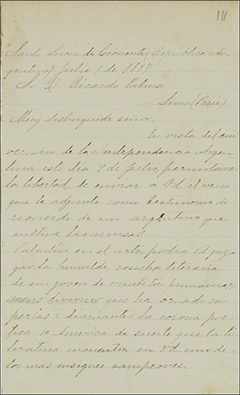 111
Santa Lucia de Corrientes (Republica Ar-
gentina) Julio 9 de 1899
Sr. D. Ricardo Palma
Lima (Perú)
Muy distinguido señor:
En vista del ani
versario de la independencia Argen
tina este día 9 de Julio, permítame
la libertad de enviar a Vd el verso
que le adjunto como testimonio de
recuerdo de un argentino que
cultiva las musas.
en el arte, podrá Vd juz
gar la humilde cosecha literaria
de un joven de veinte primaveras,
que ha ornado
la corona poe
tica de América de suerte que la li
teratura en Vd uno
de los mas insignes campeones.